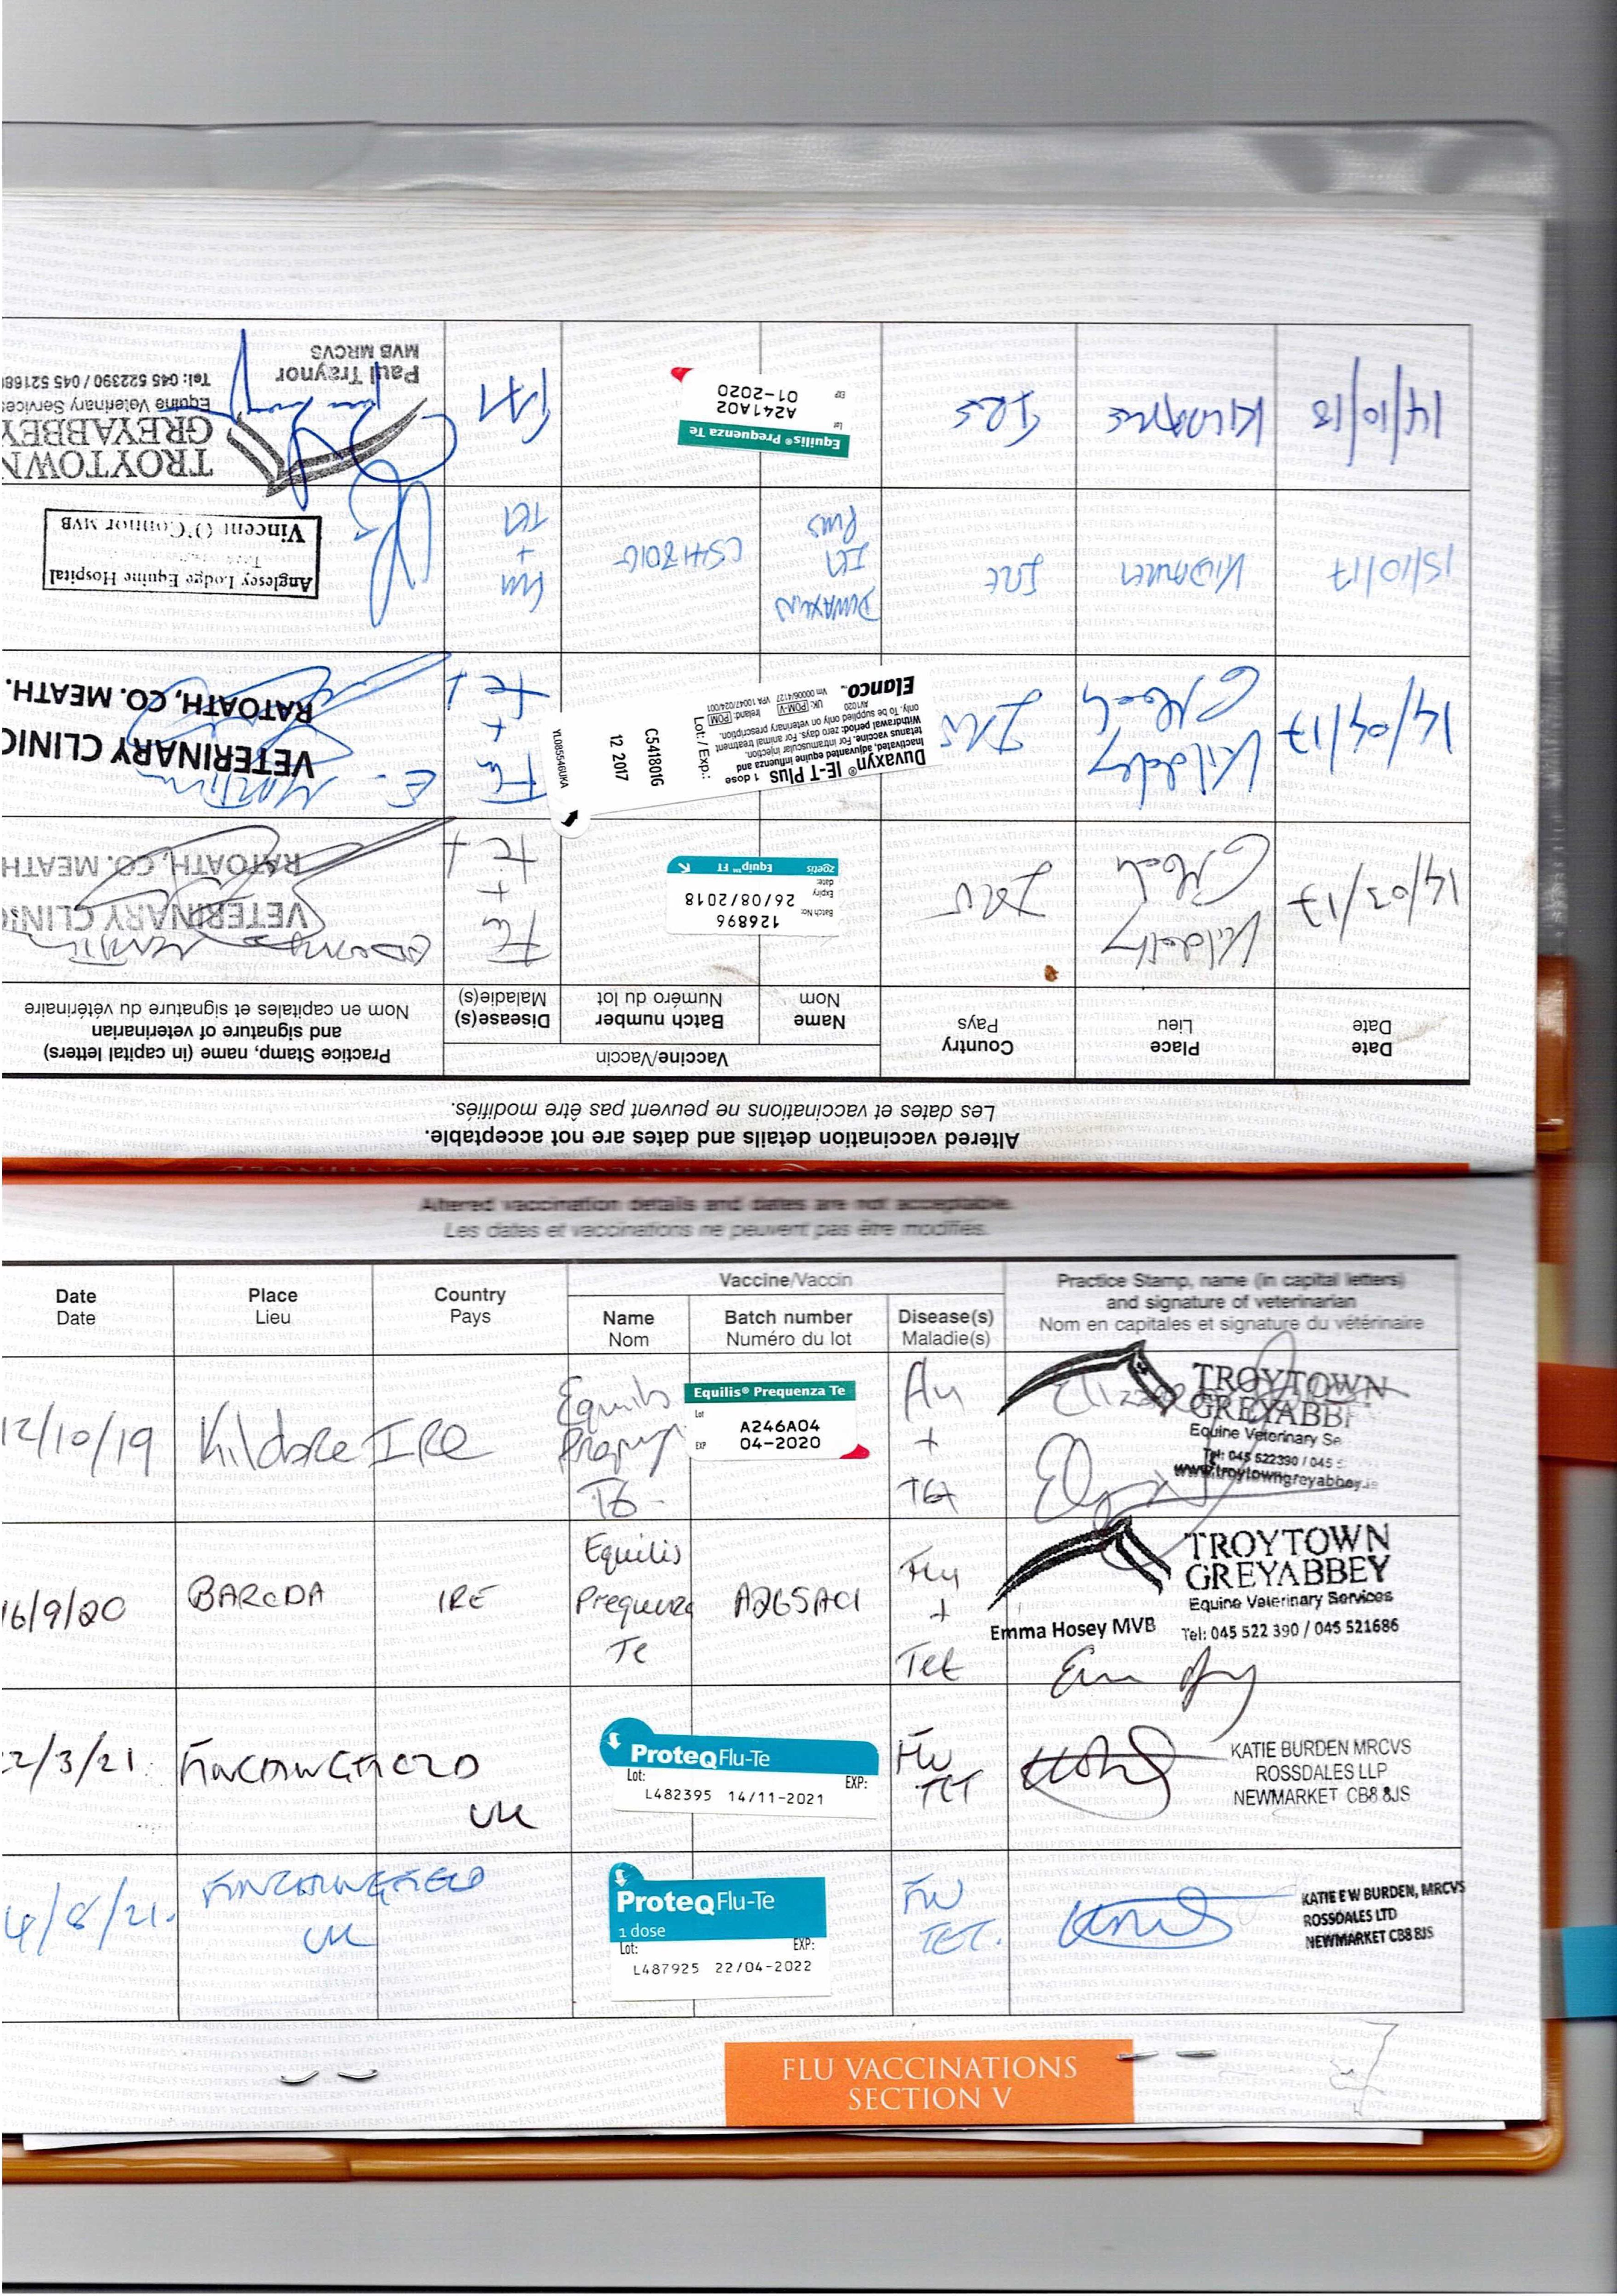 Altered vaccination details and dates are not acceptable.
Les dates et vaccinations ne peuvent pas être modifiés.
Date
Date
Place
Lieu
Country
Pays
Vaccine/Vaccin
Name
Nom
Batch number
Numéro du lot
Disease(s)
Maladie(s)
Practice Stamp, name (in capital letters)
and signature of veterinarian
Nom en capitales et signature du vétérinaire
14/03/17
Batch No:
126896
Expiry
date:
26/08/2018
zoetis Equip™ FT
Flu
+
tet
VETERINARY CLINIC
RATOATH, CO. MEATH
14/04/17
Duvaxyn® IE-T Plus 1 dose
Inactivated, adjuvanted equine influenza and
tetanus vaccine. For intramuscular injection.
Withdrawal period: zero days. For animal treatment
only. To be supplied only on veterinary prescription.
AV1020 UK: POM-V Ireland: POM
Vm 00006/4127 VPA 10047/024/001
Elanco
Lot: / Exp.:
C541801G
12 2017
YL085546UKA
Flu
+
tet
E. Martin
VETERINARY CLINIC
RATOATH, CO. MEATH.
15/10/17
Duvaxyn
IET
Plus
Flu
+
TET
Anglesey Lodge Equine Hospital
Vincent O'Connor MVB
14/10/18 KILDARE IRE
Equilis® Prequenza Te
Lot
A241A02
EXP
01-2020
TROYTOWN
GREYABBEY
Equine Veterinary Services
Tel: 045 522390 / 045 521686
Paul Traynor
MVB MRCVS
Altered vaccination details and dates are not acceptable.
Les dates et vaccinations ne peuvent pas être modifiés.
Date
Date
Place
Lieu
Country
Pays
Vaccine/Vaccin
Name
Nom
Batch number
Numéro du lot
Disease(s)
Maladie(s)
Practice Stamp, name (in capital letters)
and signature of veterinarian
Nom en capitales et signature du vétérinaire
12/10/19 Kildare IRE
Equilis
Te
Equilis® Prequenza Te
Lot
A246A04
EXP 04-2020
Flu
+
Tet
TROYTOWN
GREYABBE
Equine Veterinary Se
Tel: 045 522390 / 045 5
www.troytowngreyabbey.ie
16/9/20 BARODA IRE
Equilis
Prequenza
Te
A265A01
Flu
+
Tet
TROYTOWN
GREYABBEY
Equine Veterinary Services
Emma Hosey MVB Tel: 045 522 390 / 045 521686
2/3/21.
UK
ProteqFlu-Te
Lot: EXP:
L482395 14/11-2021
Flu
TET
KATIE BURDEN MRCVS
ROSSDALES LLP
NEWMARKET CB8 8JS
4/8/21.
UK
ProteqFlu-Te
1 dose
Lot: EXP:
L487925 22/04-2022
Flu
TET.
KATIE E W BURDEN, MRCVS
ROSSDALES LTD
NEWMARKET CB8 8JS
FLU VACCINATIONS
SECTION V